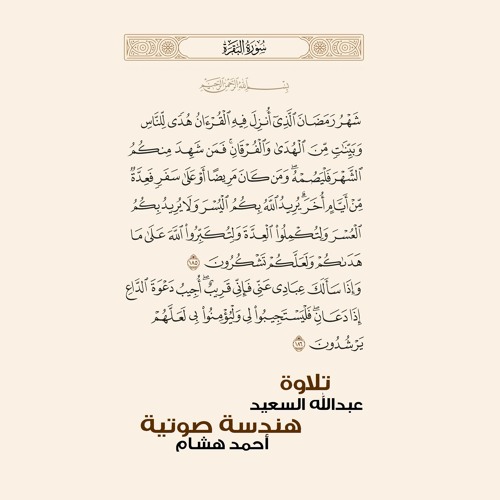 سُورَةُ البَقَرَةِ
بِسْمِ اللَّهِ الرَّحْمَٰنِ الرَّحِيمِ
شَهْرُ رَمَضَانَ ٱلَّذِىٓ أُنزِلَ فِيهِ ٱلْقُرْءَانُ هُدًى لِّلنَّاسِ
وَبَيِّنَٰتٍ مِّنَ ٱلْهُدَىٰ وَٱلْفُرْقَانِۚ فَمَن شَهِدَ مِنكُمُ
ٱلشَّهْرَ فَلْيَصُمْهُۖ وَمَن كَانَ مَرِيضًا أَوْ عَلَىٰ سَفَرٍ فَعِدَّةٌ
مِّنْ أَيَّامٍ أُخَرَۗ يُرِيدُ ٱللَّهُ بِكُمُ ٱلْيُسْرَ وَلَا يُرِيدُ بِكُمُ
ٱلْعُسْرَ وَلِتُكْمِلُوا۟ ٱلْعِدَّةَ وَلِتُكَبِّرُوا۟ ٱللَّهَ عَلَىٰ مَا
هَدَىٰكُمْ وَلَعَلَّكُمْ تَشْكُرُونَ ١٨٥
وَإِذَا سَأَلَكَ عِبَادِى عَنِّى فَإِنِّى قَرِيبٌۖ أُجِيبُ دَعْوَةَ ٱلدَّاعِ
إِذَا دَعَانِۖ فَلْيَسْتَجِيبُوا۟ لِى وَلْيُؤْمِنُوا۟ بِى لَعَلَّهُمْ
يَرْشُدُونَ ١٨٦
تلاوة
عبدالله السعيد
هندسة صوتية
أحمد هشام